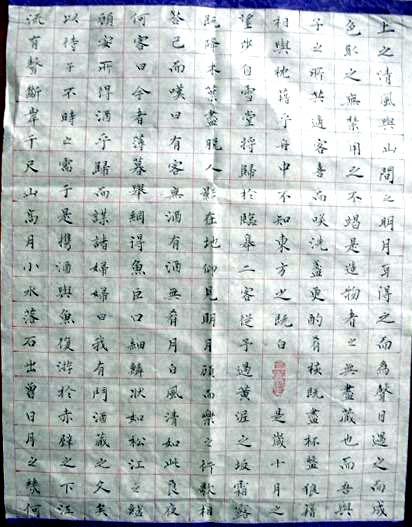 上之清風與山間之明月耳得之而為聲目遇之而成
色取之無禁用之不竭是造物者之無盡藏也而吾與
子之所共適客喜而咲洗盞更酌肴核既盡杯盤狼藉
相與枕藉乎舟中不知東方之既白 是歲十月之
望步自雪堂將歸於臨皋二客從予過黃泥之坂霜露
既降木葉盡脫人影在地仰見明月顧而樂之行歌相
答已而嘆曰有客無酒有酒無肴月白風清如此良夜
何客曰今者薄暮舉網得魚巨口細鱗狀如松江之鱸
顧安所得酒乎歸而謀諸婦婦曰我有斗酒藏之久矣
以待子不時之需于是攜酒與魚復游於赤壁之下江
流有聲斷岸千尺山高月小水落石出曾日月之幾何